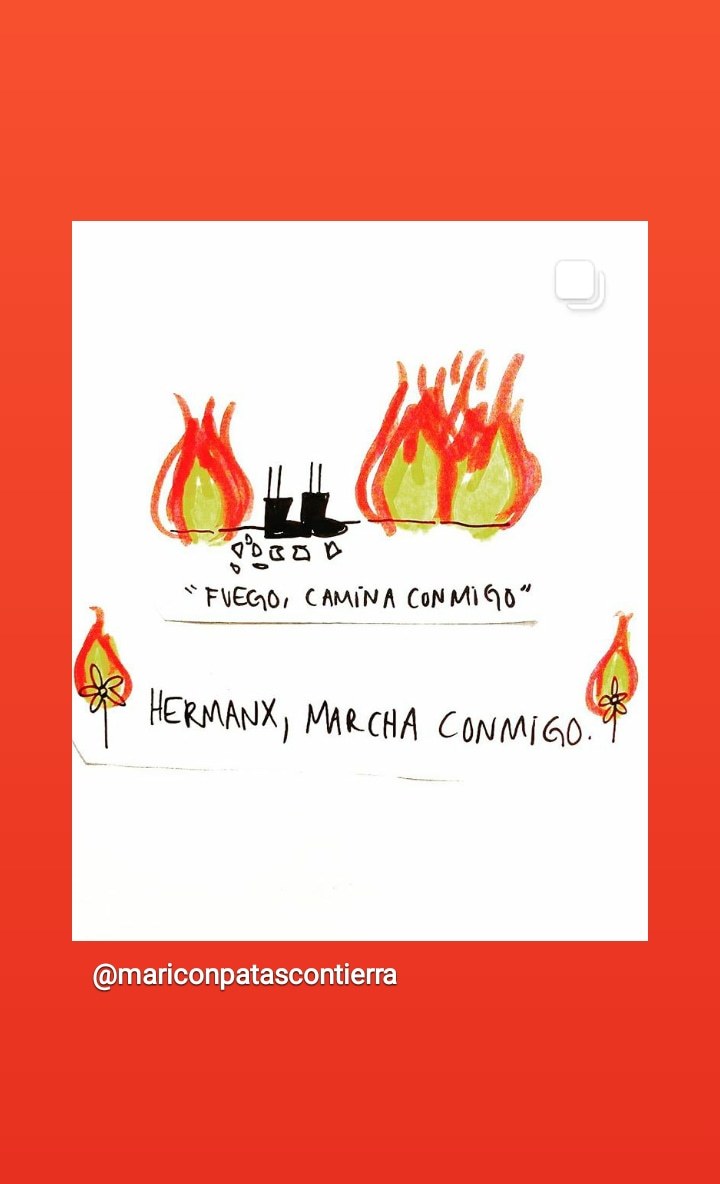 "FUEGO, CAMINA CONMIGO"
HERMANX, MARCHA CONMIGO.
@mariconpatascontierra